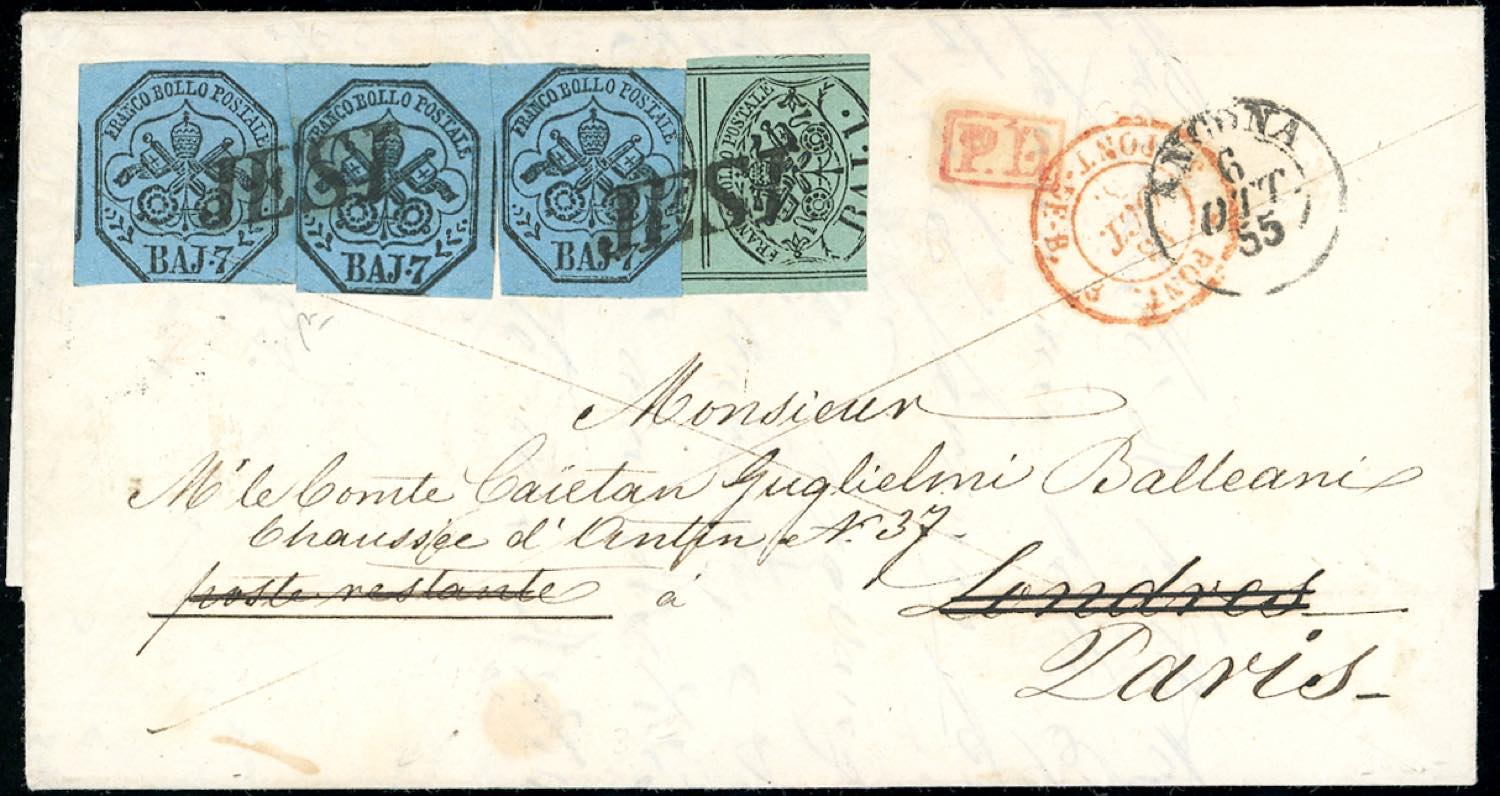 FRANCO BOLLO POSTALE
BAJ. 7
FRANCO BOLLO POSTALE
BAJ. 7
FRANCO BOLLO POSTALE
BAJ. 7
FRANCO BOLLO POSTALE
BAJ. 1.
JESI
JESI
P.D.
PONT.
PONT-DE-B.
ANCONA
6
OTT
55
Monsieur
Mr le Comte Caïetan Guglielmi Balleani
Chaussée d'Antin N. 37.
poste restante à Londres
Paris